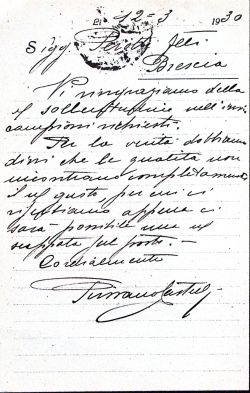 li 12-3 1930
Sigg. F.lli
Brescia
Vi ringraziamo della
sollecitudine nell'
campioni richiesti.
Per la verità dobbiamo
dirvi che le qualità non
incontrano completamente
il ns/ gusto per cui ci
riserbiamo appena ci
sarà possibile una ns/
sul posto. —
Cordialmente